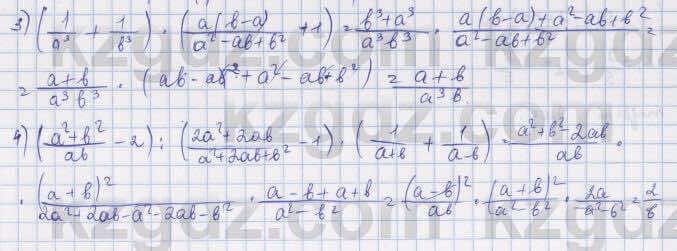 3) (1/a³ + 1/b³) · (a(b-a)/(a²-ab+b²) + 1) = (b³+a³)/(a³b³) · (a(b-a)+a²-ab+b²)/(a²-ab+b²) =
= (a+b)/(a³b³) · (ab-ab²+a²-ab+b²) = (a+b)/(a³b)
4) ((a²+b²)/ab - 2) : ((2a²+2ab)/(a²+2ab+b²) - 1) · (1/(a+b) + 1/(a-b)) = (a²+b²-2ab)/ab ·
· (a+b)²/(2a²+2ab-a²-2ab-b²) · (a-b+a+b)/(a²-b²) = (a-b)²/ab · (a+b)²/(a²-b²) · 2a/(a²-b²) = 2/b
kzgdz.com